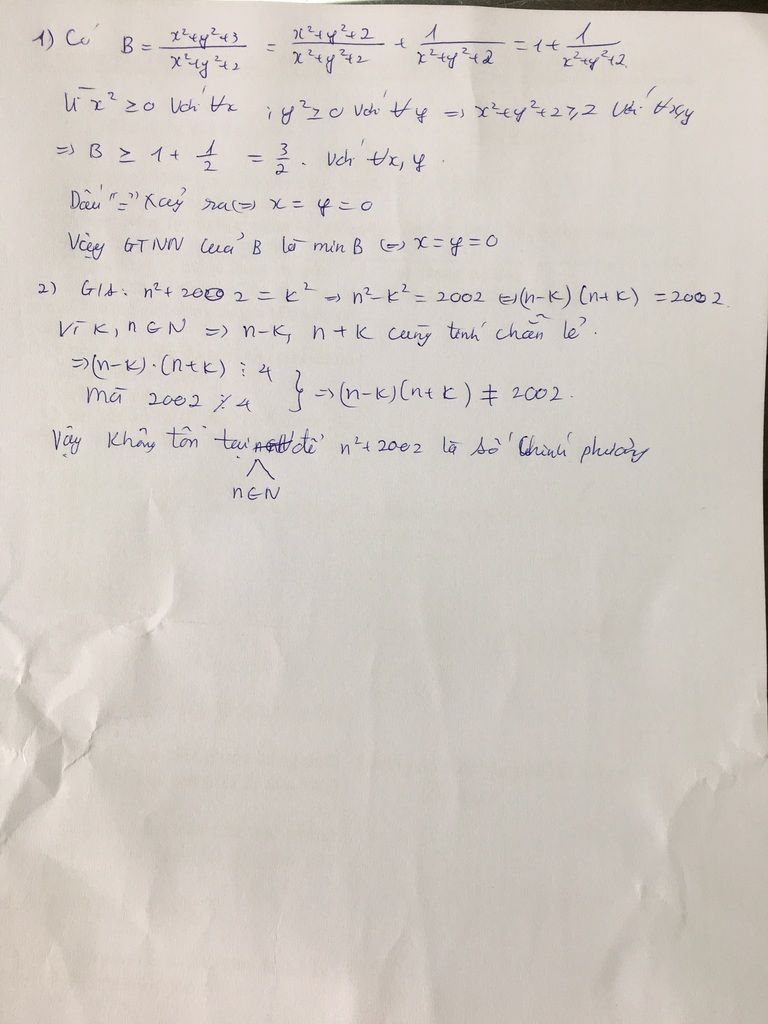 1) Có B = \frac{x²+y²+3}{x²+y²+2} = \frac{x²+y²+2}{x²+y²+2} + \frac{1}{x²+y²+2} = 1 + \frac{1}{x²+y²+2}.
Vì x² ≥ 0 với ∀x ; y² ≥ 0 với ∀y => x²+y²+2 ≥ 2 với ∀x,y
=> B ≥ 1 + \frac{1}{2} = \frac{3}{2}. với ∀x, y.
Dấu "=" xảy ra <=> x = y = 0
Vậy GTNN của B là min B <=> x = y = 0
2) G/s: n² + 2002 = k² => n² - k² = 2002 <=> (n-k)(n+k) = 2002.
Vì k, n ∈ N => n-k, n+k cùng tính chẵn lẻ.
=> (n-k).(n+k) ⋮ 4
mà 2002 ⋮̸ 4 } => (n-k)(n+k) ≠ 2002.
Vậy không tồn tại để n² + 2002 là số chính phương
n ∈ N